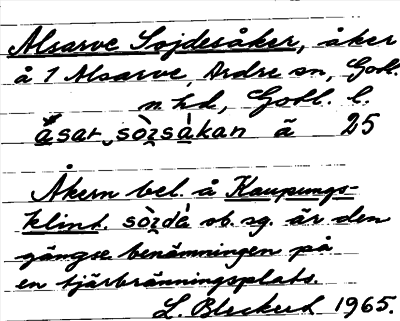 Alsarve Sojdesåker, åker
å 1 Alsarve, Ardre sn, Gotl.
n. hd, Gotl. l.
àsar sòʒsàkan ã 25
Åkern bel. å Kaupungs-
klint. sòʒdà sb. sg. är den
gängse benämningen på
en tjärbränningsplats.
L. Bleckert 1965.